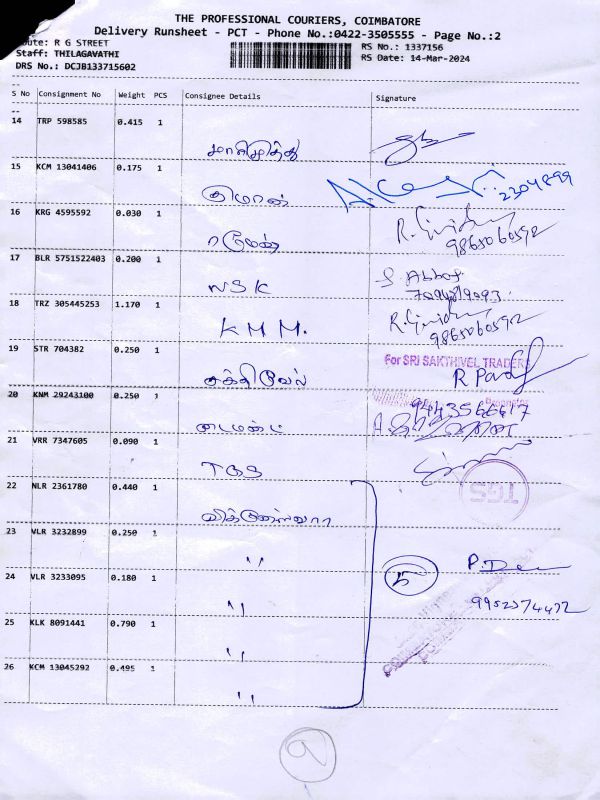 THE PROFESSIONAL COURIERS, COIMBATORE
Delivery Runsheet - PCT - Phone No.:0422-3505555 - Page No.:2
Route: R G STREET
RS No.: 1337156
Staff: THILAGAVATHI
RS Date: 14-Mar-2024
DRS No.: DCJB133715602
S No Consignment No Weight PCS Consignee Details Signature
14 TRP 598585 0.415 1
மாரிமுத்து
15 KCM 13041406 0.175 1
2304899
16 KRG 4595592 0.030 1
ரமேஷ்
9865060592
17 BLR 5751522403 0.200 1
NSK
18 TRZ 305445253 1.170 1
KMM.
9865060592
19 STR 704382 0.250 1
சக்திவேல்
For SRI SAKTHIVEL TRADERS
20 KNM 29243100 0.250 1
Proprietor
டைமண்ட்
21 VRR 7347605 0.090 1
TGS
TGS
22 NLR 2361780 0.440 1
விக்னேஸ்வரா
23 VLR 3232899 0.250 1
"
5
24 VLR 3233095 0.180 1
"
25 KLK 8091441 0.790 1
"
26 KCM 13045292 0.495 1
"